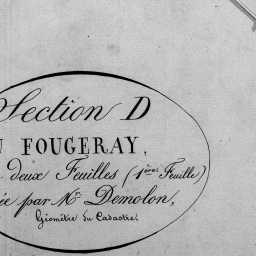 Section D
U FOUGERAY,
deux Feuilles (1ère Feuille)
ée par Mr. Demolon,
Géomètre du Cadastre.